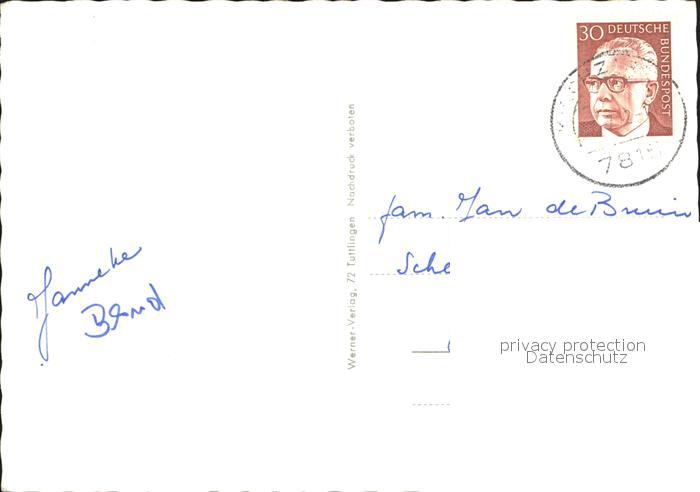 30 DEUTSCHE
BUNDESPOST
7815
Werner-Verlag, 72 Tuttlingen Nachdruck verboten
fam. Jan de Bruin
Sche
Janneke
privacy protection
Datenschutz